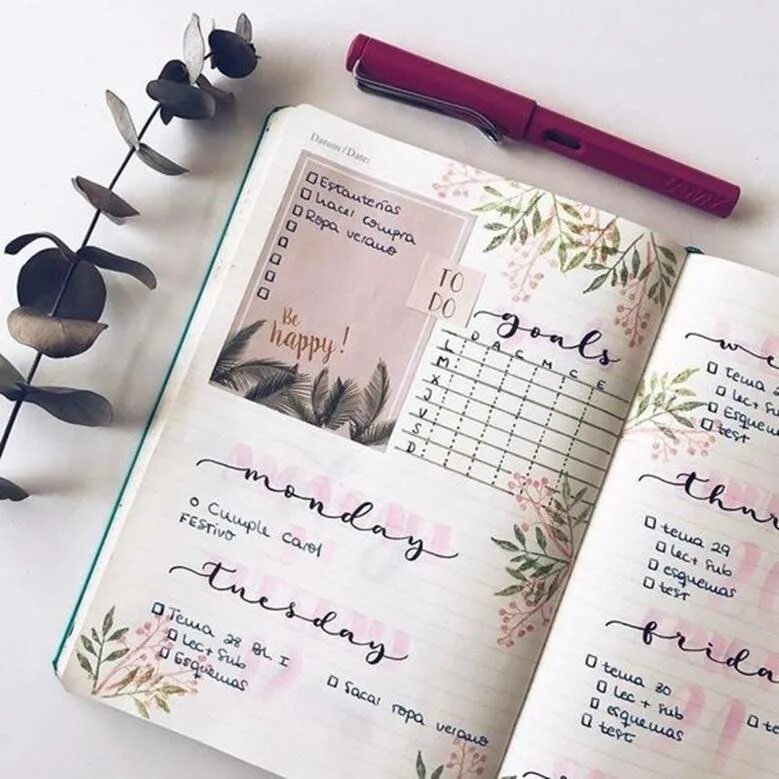 Datum/Date:
Estanterías
hacer compra
Ropa verano
TO
DO
Be
happy!
goals
D A C M C E
L
M
X
J
V
S
D
monday
Cumple Carol
FESTIVO
tuesday
Tema 28 BL. I
Lec + sub
Esquemas
Sacar ropa verano
tema
lec + s
Esquema
test
thur
tema 29
lec + sub
esquemas
test
frida
tema 30
lec + sub
esquemas
test